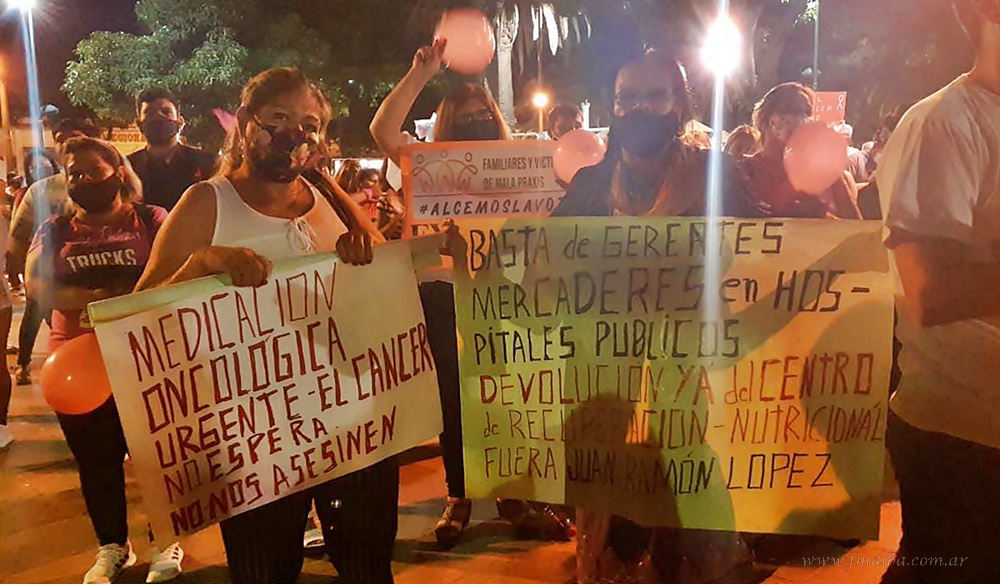 MEDICACION
ONCOLOGICA
URGENTE-EL CANCER
NO ESPERA.
NO NOS ASESINEN
FAMILIARES Y VÍCT
DE MALA PRAXIS
#ALCEMOSLAVO
BASTA de GERENTES
MERCADERES en HOS-
PITALES PUBLICOS
DEVOLUCION YA del CENTRO
de RECUPERACION-NUTRICIONAL
FUERA JUAN RAMÓN LOPEZ
TRUCKS
www.fmalba.com.ar